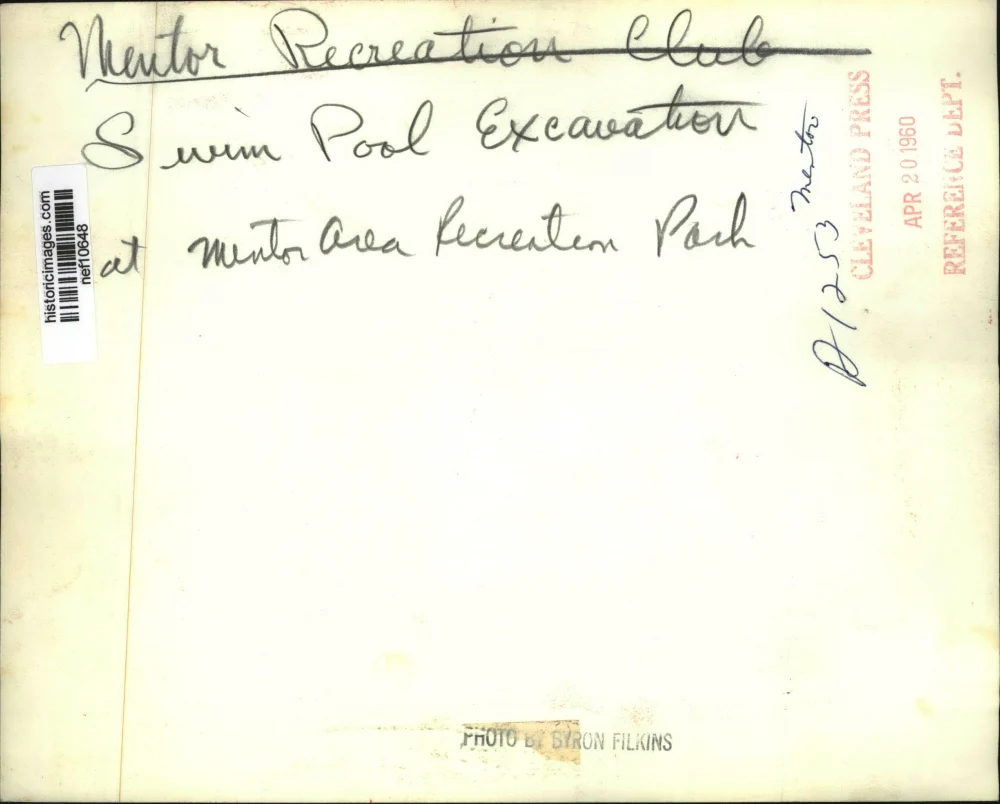 Mentor Recreation Club
Swim Pool Excavation
at Mentor Area Recreation Park
historicimages.com
nef10648
D1253 Mentor
CLEVELAND PRESS
APR 20 1960
REFERENCE DEPT.
PHOTO BY BYRON FILKINS